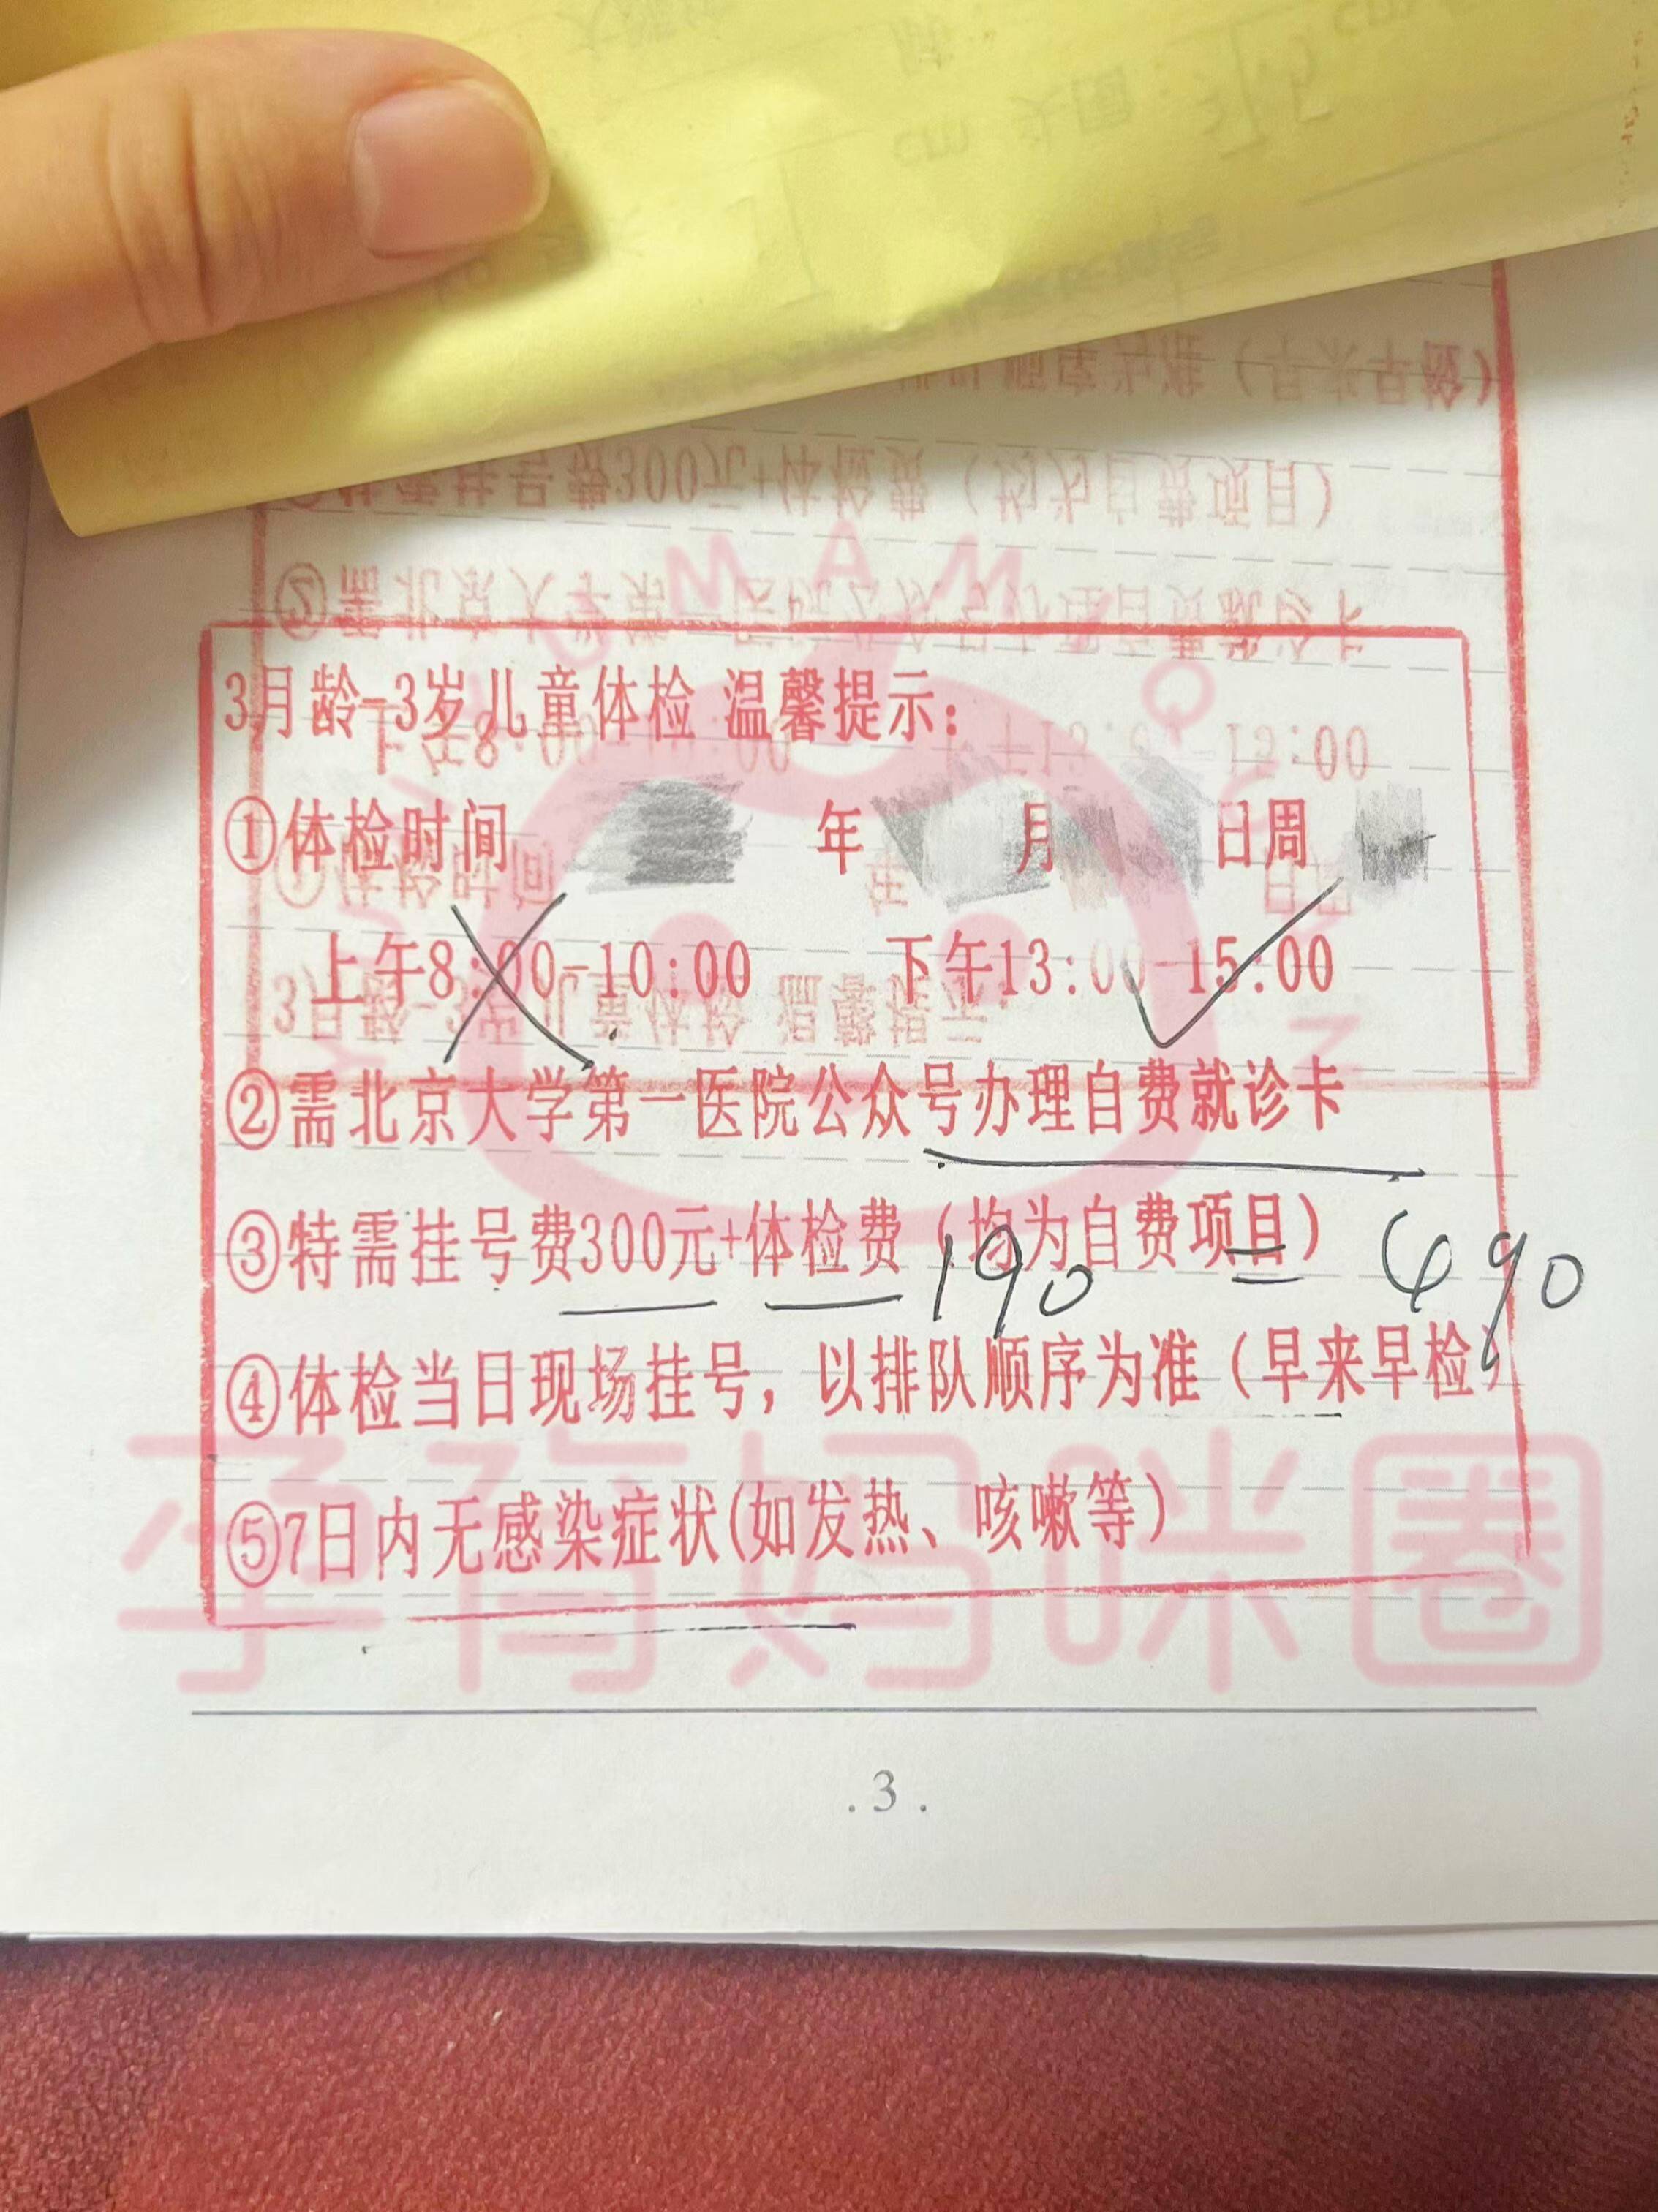 3月龄-3岁儿童体检 温馨提示：
①体检时间 年 月 日周
上午8:00-10:00 下午13:00-15:00
②需北京大学第一医院公众号办理自费就诊卡
③特需挂号费300元+体检费（均为自费项目）
190 = 490
④体检当日现场挂号，以排队顺序为准（早来早检）
⑤7日内无感染症状(如发热、咳嗽等）
孕育妈咪圈
. 3 .